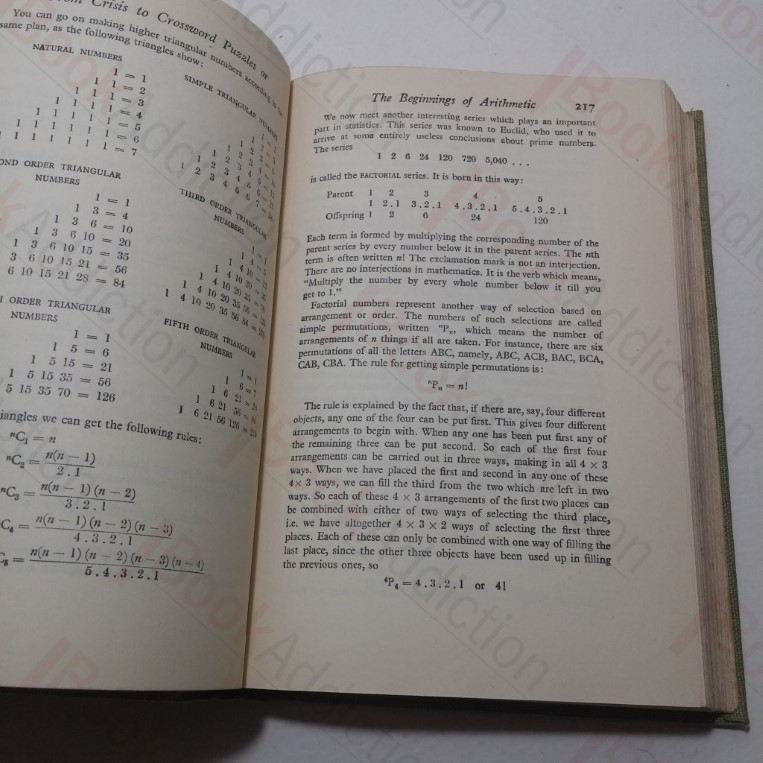 From Crisis to Crossword Puzzles or
You can go on making higher triangular numbers according to the
same plan, as the following triangles show:
NATURAL NUMBERS
1 = 1
1 1 = 2
1 1 1 = 3
1 1 1 1 = 4
1 1 1 1 1 = 5
1 1 1 1 1 1 = 6
1 1 1 1 1 1 1 = 7
SIMPLE TRIANGULAR
OND ORDER TRIANGULAR
NUMBERS
1 = 1
1 3 = 4
1 3 6 = 10
1 3 6 10 = 20
1 3 6 10 15 = 35
3 6 10 15 21 = 56
6 10 15 21 28 = 84
THIRD ORDER TRIANGULAR
NUMBERS
ORDER TRIANGULAR
NUMBERS
1 = 1
1 5 = 6
1 5 15 = 21
1 5 15 35 = 56
5 15 35 70 = 126
FIFTH ORDER TRIANGULAR
NUMBERS
1 = 1
1 6 = 7
1 6 21
1 6 21 56
1 6 21 56 126
iangles we can get the following rules:
ⁿC₁ = n
ⁿC₂ = n(n − 1)
2 . 1
ⁿC₃ = n(n − 1) (n − 2)
3 . 2 . 1
C₄ = n(n − 1) (n − 2) (n − 3)
4 . 3 . 2 . 1
C₅ = n(n − 1) (n − 2) (n − 3) (n − 4)
5 . 4 . 3 . 2 . 1
The Beginnings of Arithmetic 217
We now meet another interesting series which plays an important
part in statistics. This series was known to Euclid, who used it to
arrive at some entirely useless conclusions about prime numbers.
The series
1 2 6 24 120 720 5,040 . . .
is called the FACTORIAL series. It is born in this way:
Parent 1 2 3 4 5
1 2 . 1 3 . 2 . 1 4 . 3 . 2 . 1 5 . 4 . 3 . 2 . 1
Offspring 1 2 6 24 120
Each term is formed by multiplying the corresponding number of the
parent series by every number below it in the parent series. The nth
term is often written n! The exclamation mark is not an interjection.
There are no interjections in mathematics. It is the verb which means,
"Multiply the number by every whole number below it till you
get to 1."
Factorial numbers represent another way of selection based on
arrangement or order. The numbers of such selections are called
simple permutations, written ⁿPₙ, which means the number of
arrangements of n things if all are taken. For instance, there are six
permutations of all the letters ABC, namely, ABC, ACB, BAC, BCA,
CAB, CBA. The rule for getting simple permutations is:
ⁿPₙ = n!
The rule is explained by the fact that, if there are, say, four different
objects, any one of the four can be put first. This gives four different
arrangements to begin with. When any one has been put first any of
the remaining three can be put second. So each of the first four
arrangements can be carried out in three ways, making in all 4 × 3
ways. When we have placed the first and second in any one of these
4 × 3 ways, we can fill the third from the two which are left in two
ways. So each of these 4 × 3 arrangements of the first two places can
be combined with either of two ways of selecting the third place,
i.e. we have altogether 4 × 3 × 2 ways of selecting the first three
places. Each of these can only be combined with one way of filling the
last place, since the other three objects have been used up in filling
the previous ones, so
⁴P₄ = 4 . 3 . 2 . 1 or 4!
Book Addiction